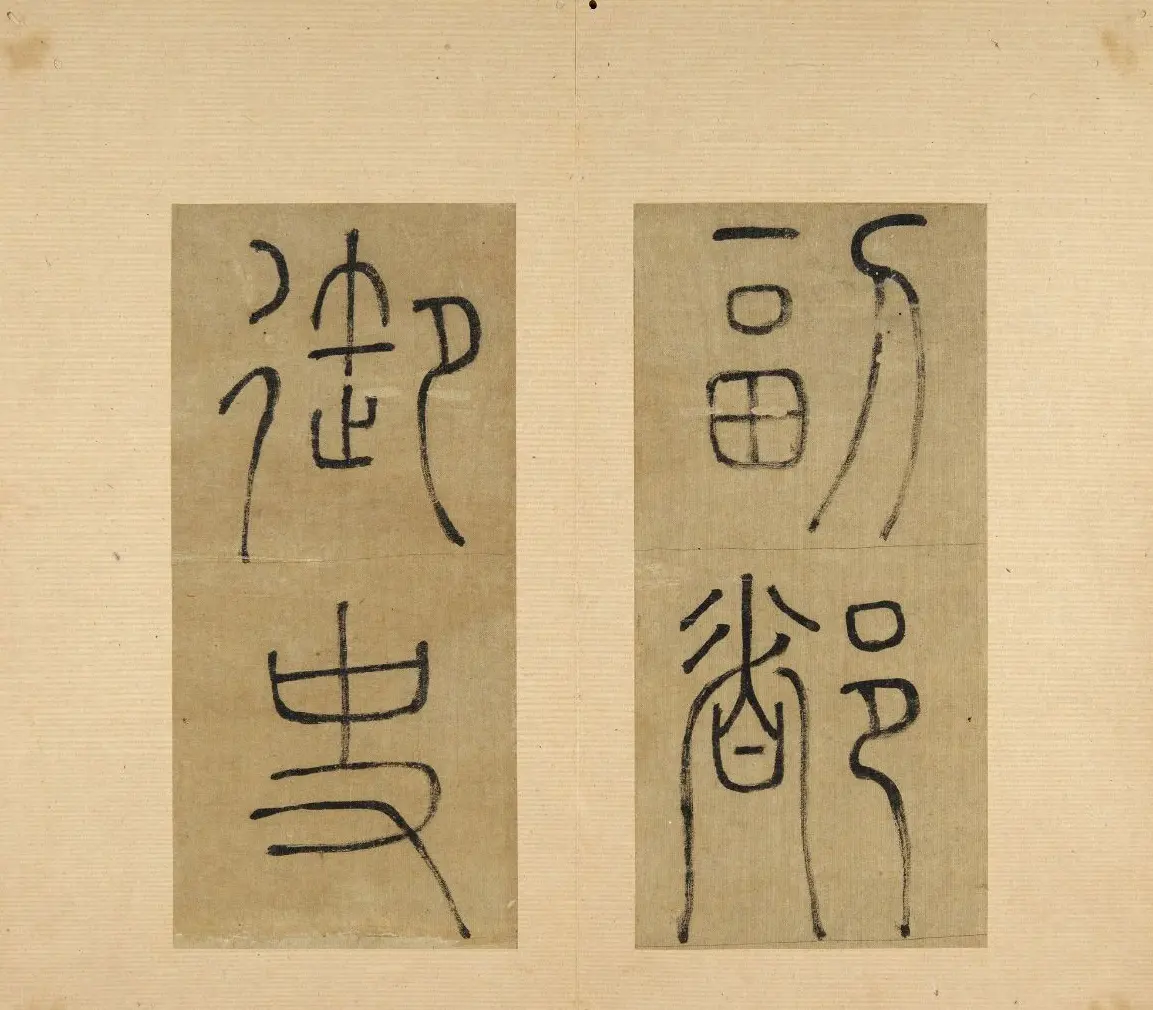 副都
御史